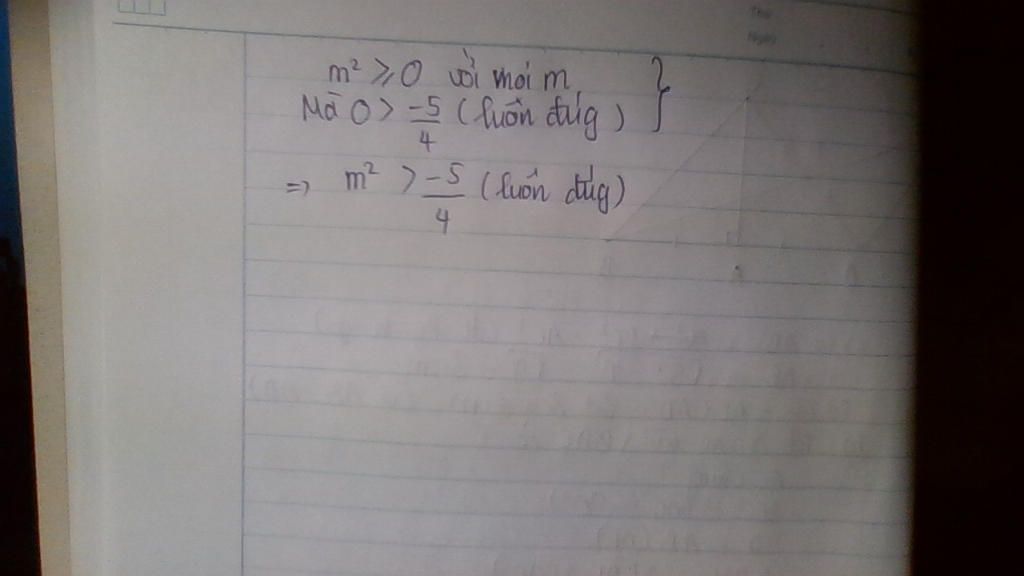 m² ⩾ 0 với mọi m }
Mà 0 > -5/4 (luôn đúg)
=> m² > -5/4 (luôn đúg)